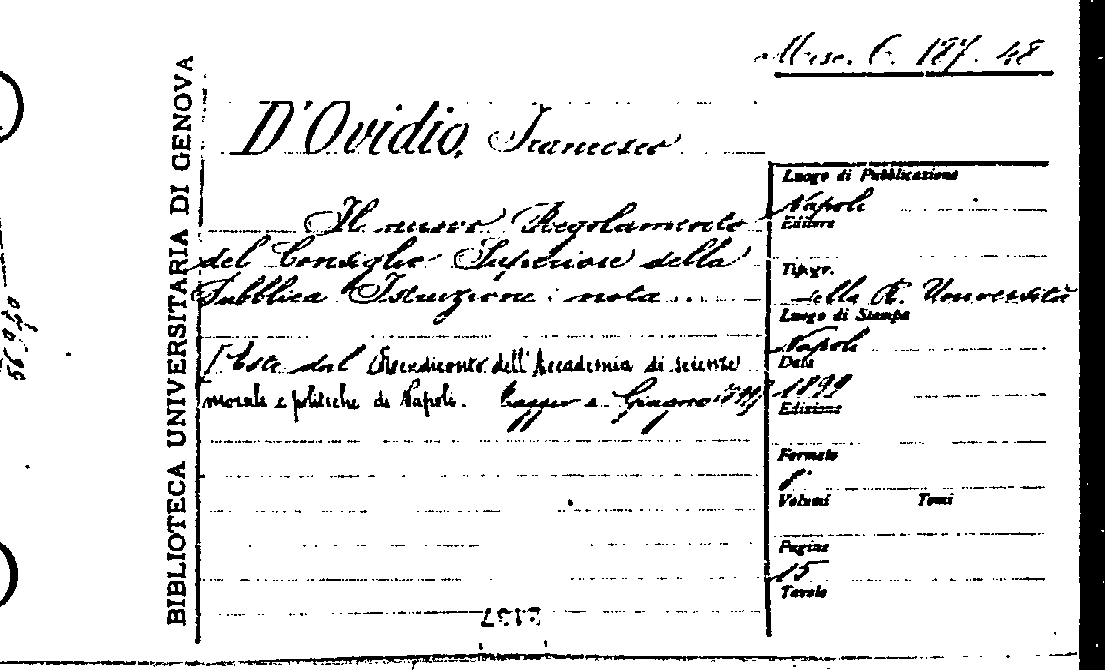 Misc. C. 187. 48
BIBLIOTECA UNIVERSITARIA DI GENOVA
D'Ovidio, Francesco
Il nuovo Regolamento
del Consiglio Superiore della
Pubblica Istruzione: nota
[Estr. dal Rendiconto dell'Accademia di scienze
morali e politiche di Napoli. Maggio e Giugno 1899]
Luogo di Pubblicazione
Napoli
Editore
Tipogr.
della R. Università
Luogo di Stampa
Napoli
Data
1899
Edizione
Formato
8°
Volumi Tomi
Pagine
15
Tavole